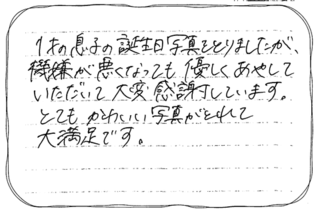 1才の息子の誕生日写真をとりましたが、
機嫌が悪くなっても優しくあやして
いただいて大変感謝しています。
とてもかわいい写真がとれて
大満足です。